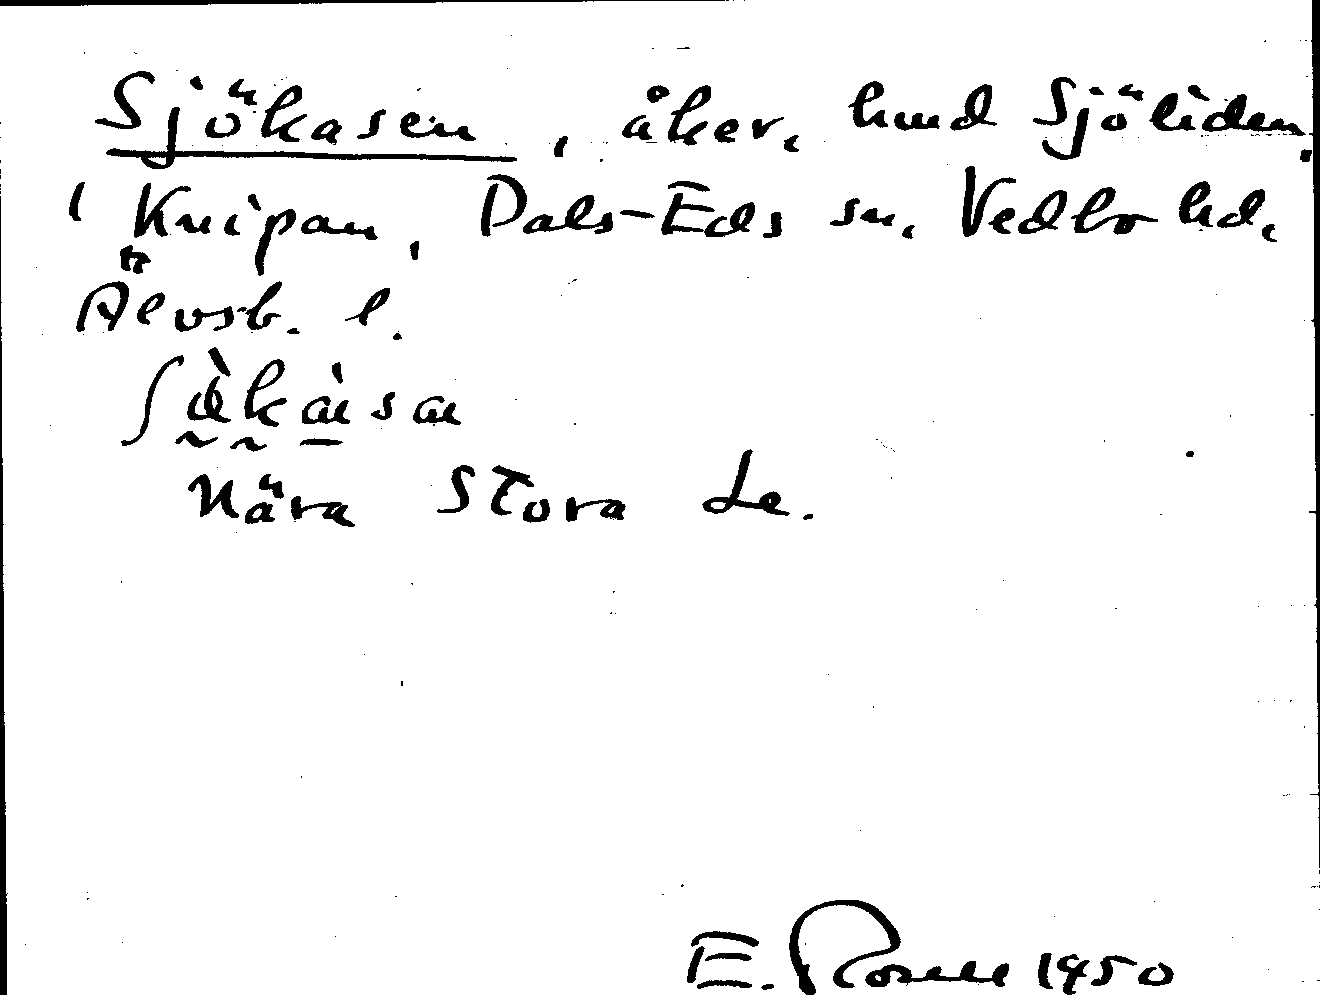 Sjökasen, åker, hmd Sjöliden,
i Knipan, Dals-Eds sn, Vedbo hd,
Älvsb. l.
Nära Stora Le.
E. Rosell 1950